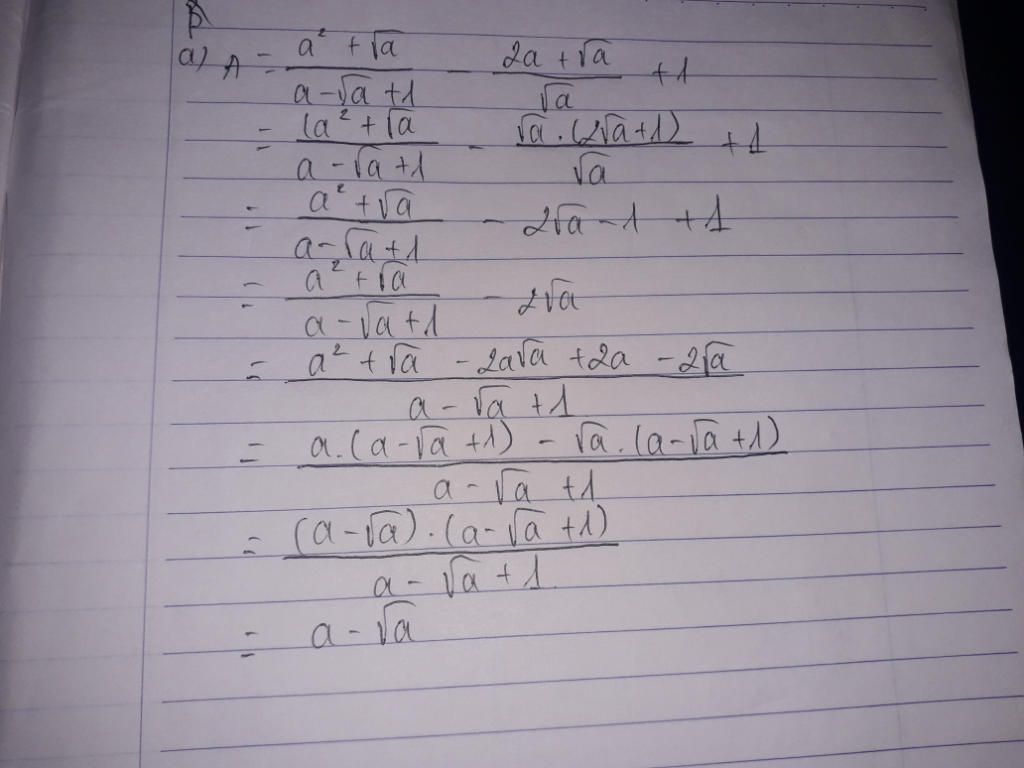 a) A = \frac{a² + √a}{a - √a + 1} - \frac{2a + √a}{√a} + 1
= \frac{(a² + √a}{a - √a + 1} - \frac{√a . (2√a + 1)}{√a} + 1
= \frac{a² + √a}{a - √a + 1} - 2√a - 1 + 1
= \frac{a² + √a}{a - √a + 1} - 2√a
= \frac{a² + √a - 2a√a + 2a - 2√a}{a - √a + 1}
= \frac{a . (a - √a + 1) - √a . (a - √a + 1)}{a - √a + 1}
= \frac{(a - √a) . (a - √a + 1)}{a - √a + 1}
= a - √a